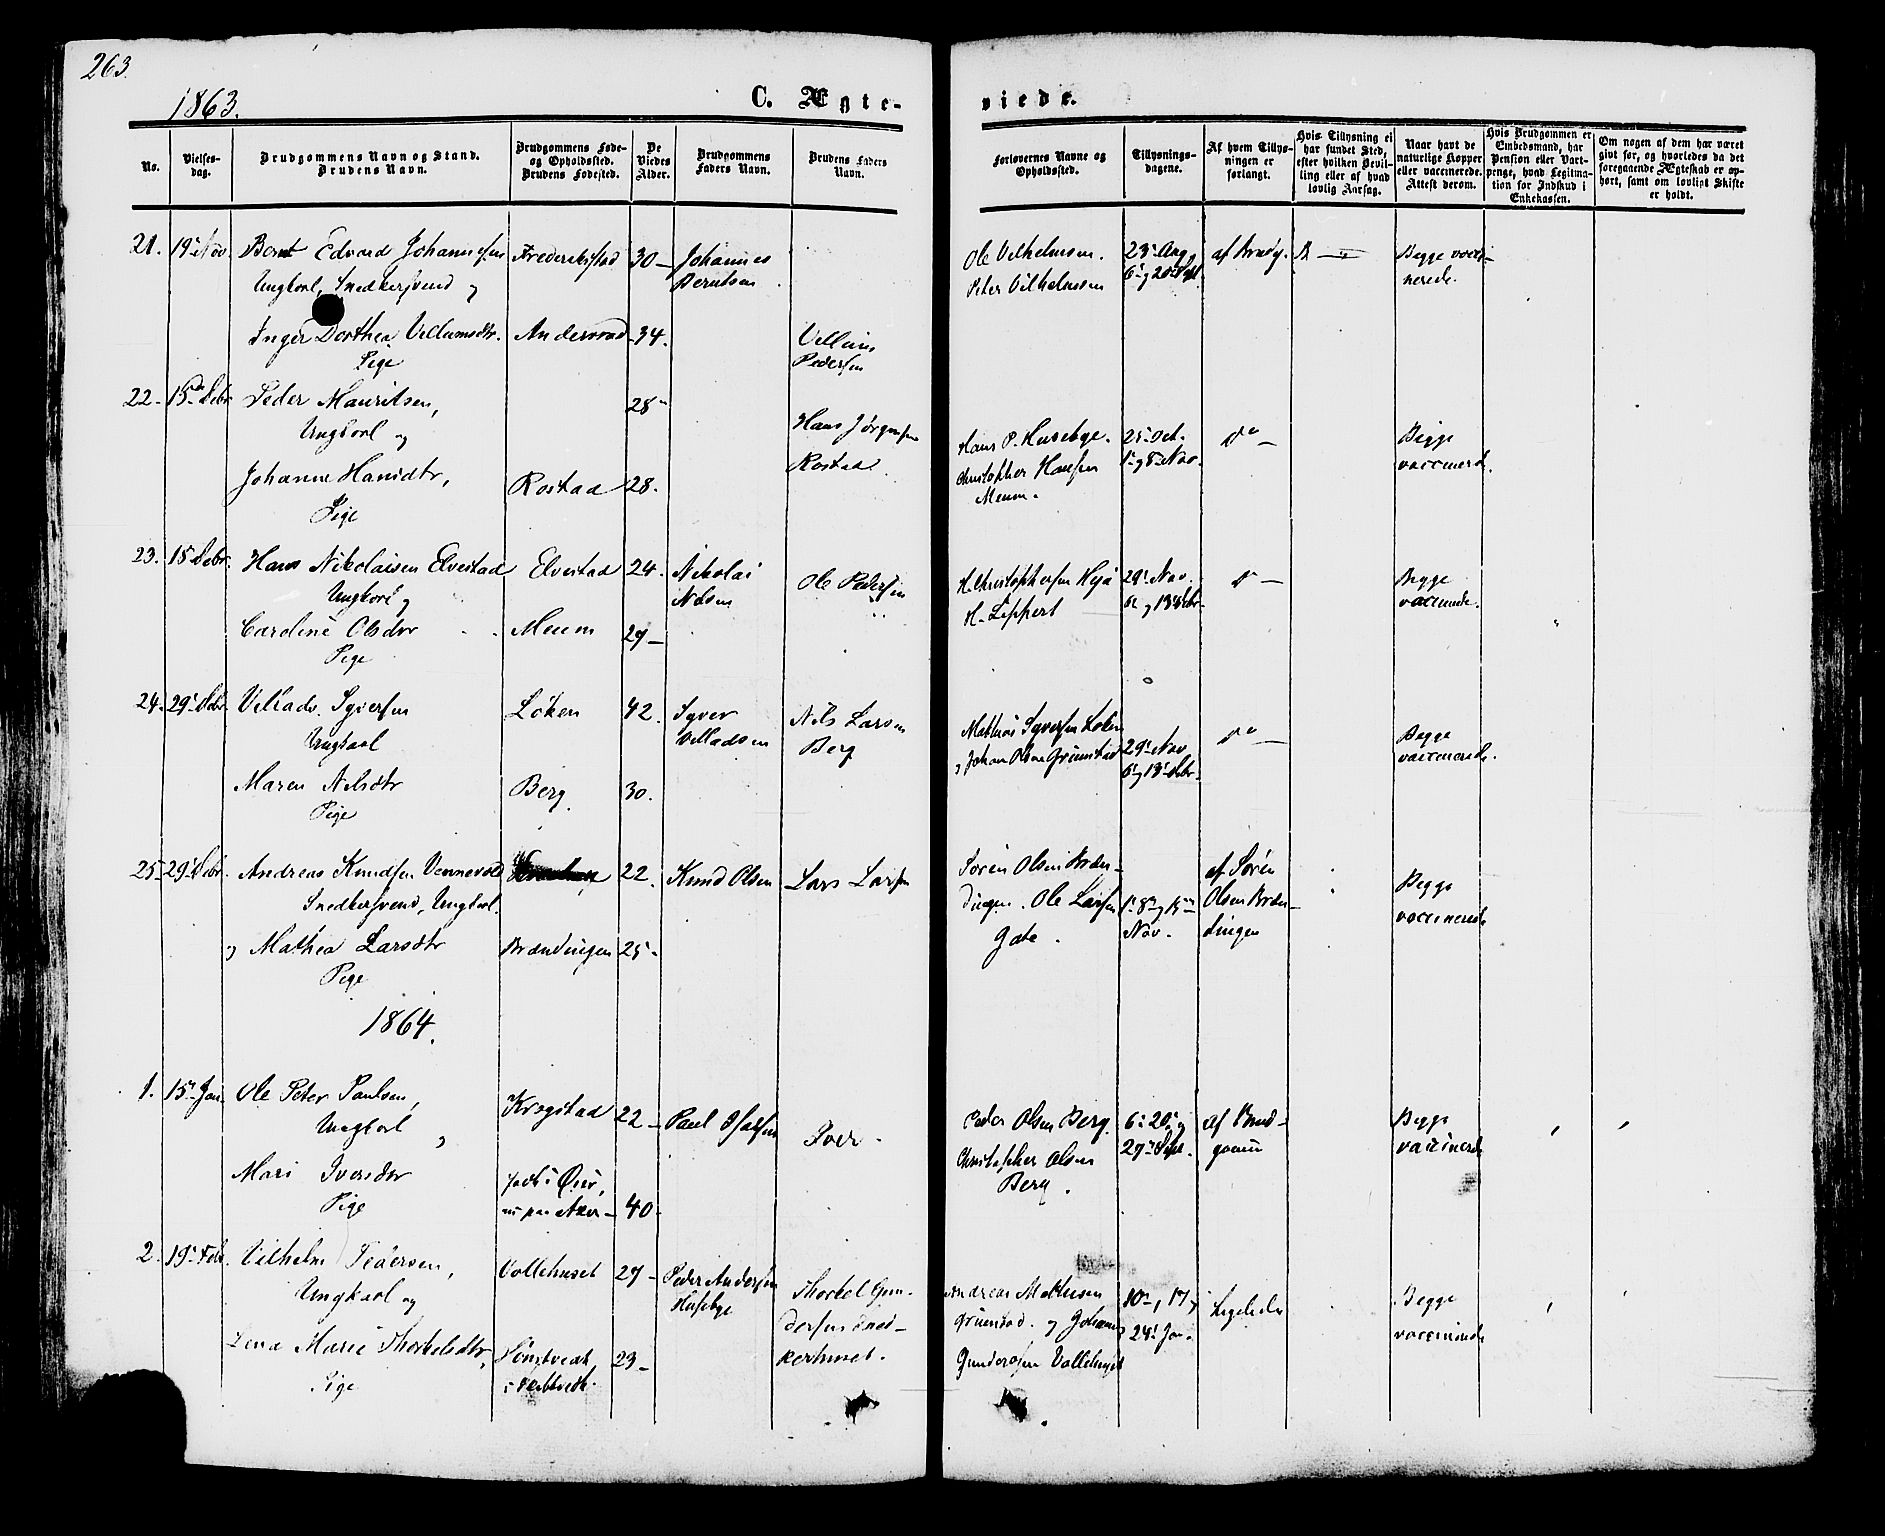 263.
1863.
C. Ægte-
viede.
No.
Vielses-
dag.
Brudgommens Navn og Stand.
Brudens Navn.
Brudgommens Føde-
og Opholdssted.
Brudens Fødested.
De
Viedes
Alder.
Brudgommens
Faders Navn.
Brudens Faders
Navn.
Forlovernes Navne og
Opholdssted.
Tillysnings-
dagene.
Af hvem Tillys-
ningen er
forlangt.
Hvis Tillysning ei
har fundet Sted,
efter hvilken Bevil-
ling eller af hvad
lovlig Aarsag.
Naar havt de
naturlige Kopper
eller vaccinerede.
Attest derom.
Hvis Brudgommen er
Embedsmand, har
Pension eller Vart-
penge, hvad Legitima-
tion for Indskud i
Enkekassen.
Om nogen af dem har været
gift før, og hvorledes da det
foregaaende Ægteskab er op-
hørt, samt om lovligt Skifte
er holdt.
21. 19. Nov. Bernt Edvard Johannesen Frederikstad 30 Johannes Berntsen
Ungkarl, Snedkersvend og
Inger Dorthea Villumsdtr. 34. Villum Pedersen
Pige
Ole Vilhelmsen. 23. Aug, af Brudg. Begge vacci-
Peter Vilhelmssen 6. og 20. Sept nerede.
22. 15. Debr. Peder Mauritsen, 28 Hans Jørgensen
Ungkarl og Rostad.
Johanne Hansdtr, Rostad 28.
Pige
Hans P. Husebye. 25. Oct. do Begge
Christopher Hansen 1. og 8. Nov. vaccinerede.
Menum.
23. 15 Debr. Hans Nikolaisen Elvestad Elvestad 24. Nikolai Nilsen Ole Pedersen
Ungkarl og
Caroline Olsdtr Menum 29
Pige
H. Christophersen 29. Nov. do Begge
H. Lippert 6. og 13. Debr. vaccinerede.
24. 29. Debr. Villads Syversen Løken 42. Syver Villadsen Nils Larsen Berg
Ungkarl
Maren Nilsdtr Berg. 30.
Pige
Mathias Syversen Løken do Begge
og Johan Olsen Grimstad 29. Nov. 6. og 13. Debr. vaccinerede.
25. 29. Debr. Andreas Knudsen Vennevold 22. Knud Olsen Lars Larsen
Snedkersvend, Ungkarl.
og Mathea Larsdtr Brændingen 25.
Pige
Søren Olsen Bræn- af Søren Begge
dingen. Ole Larsen 1. 8. og 15. Olsen Bræn- vaccinerede
Gate. Nov. dingen
1864.
1. 15. Jan. Ole Peter Paulsen, Krogstad 22 Paul Iver
Ungkarl og
Mari Iversdtr født i 40
Pige
Peder Olsen Berg. 6. 20. og af Brud- Begge
Christopher Olsen 27. Sept. gom vaccinerede
Berg.
2. 19. Febr. Vilhelm Pedersen, Vollehuset 27 Peder Andersen Husebye Thorkel Gun-
Ungkarl og dersen Sned-
Lena Marie Thorkelsdtr, 23 kerhuset.
Pige
Andreas Mathisen 10. 17. og Ligeledes Begge
Grimstad. og Johannes 24. Jan. vaccinerede
Gundersen Vollehuset